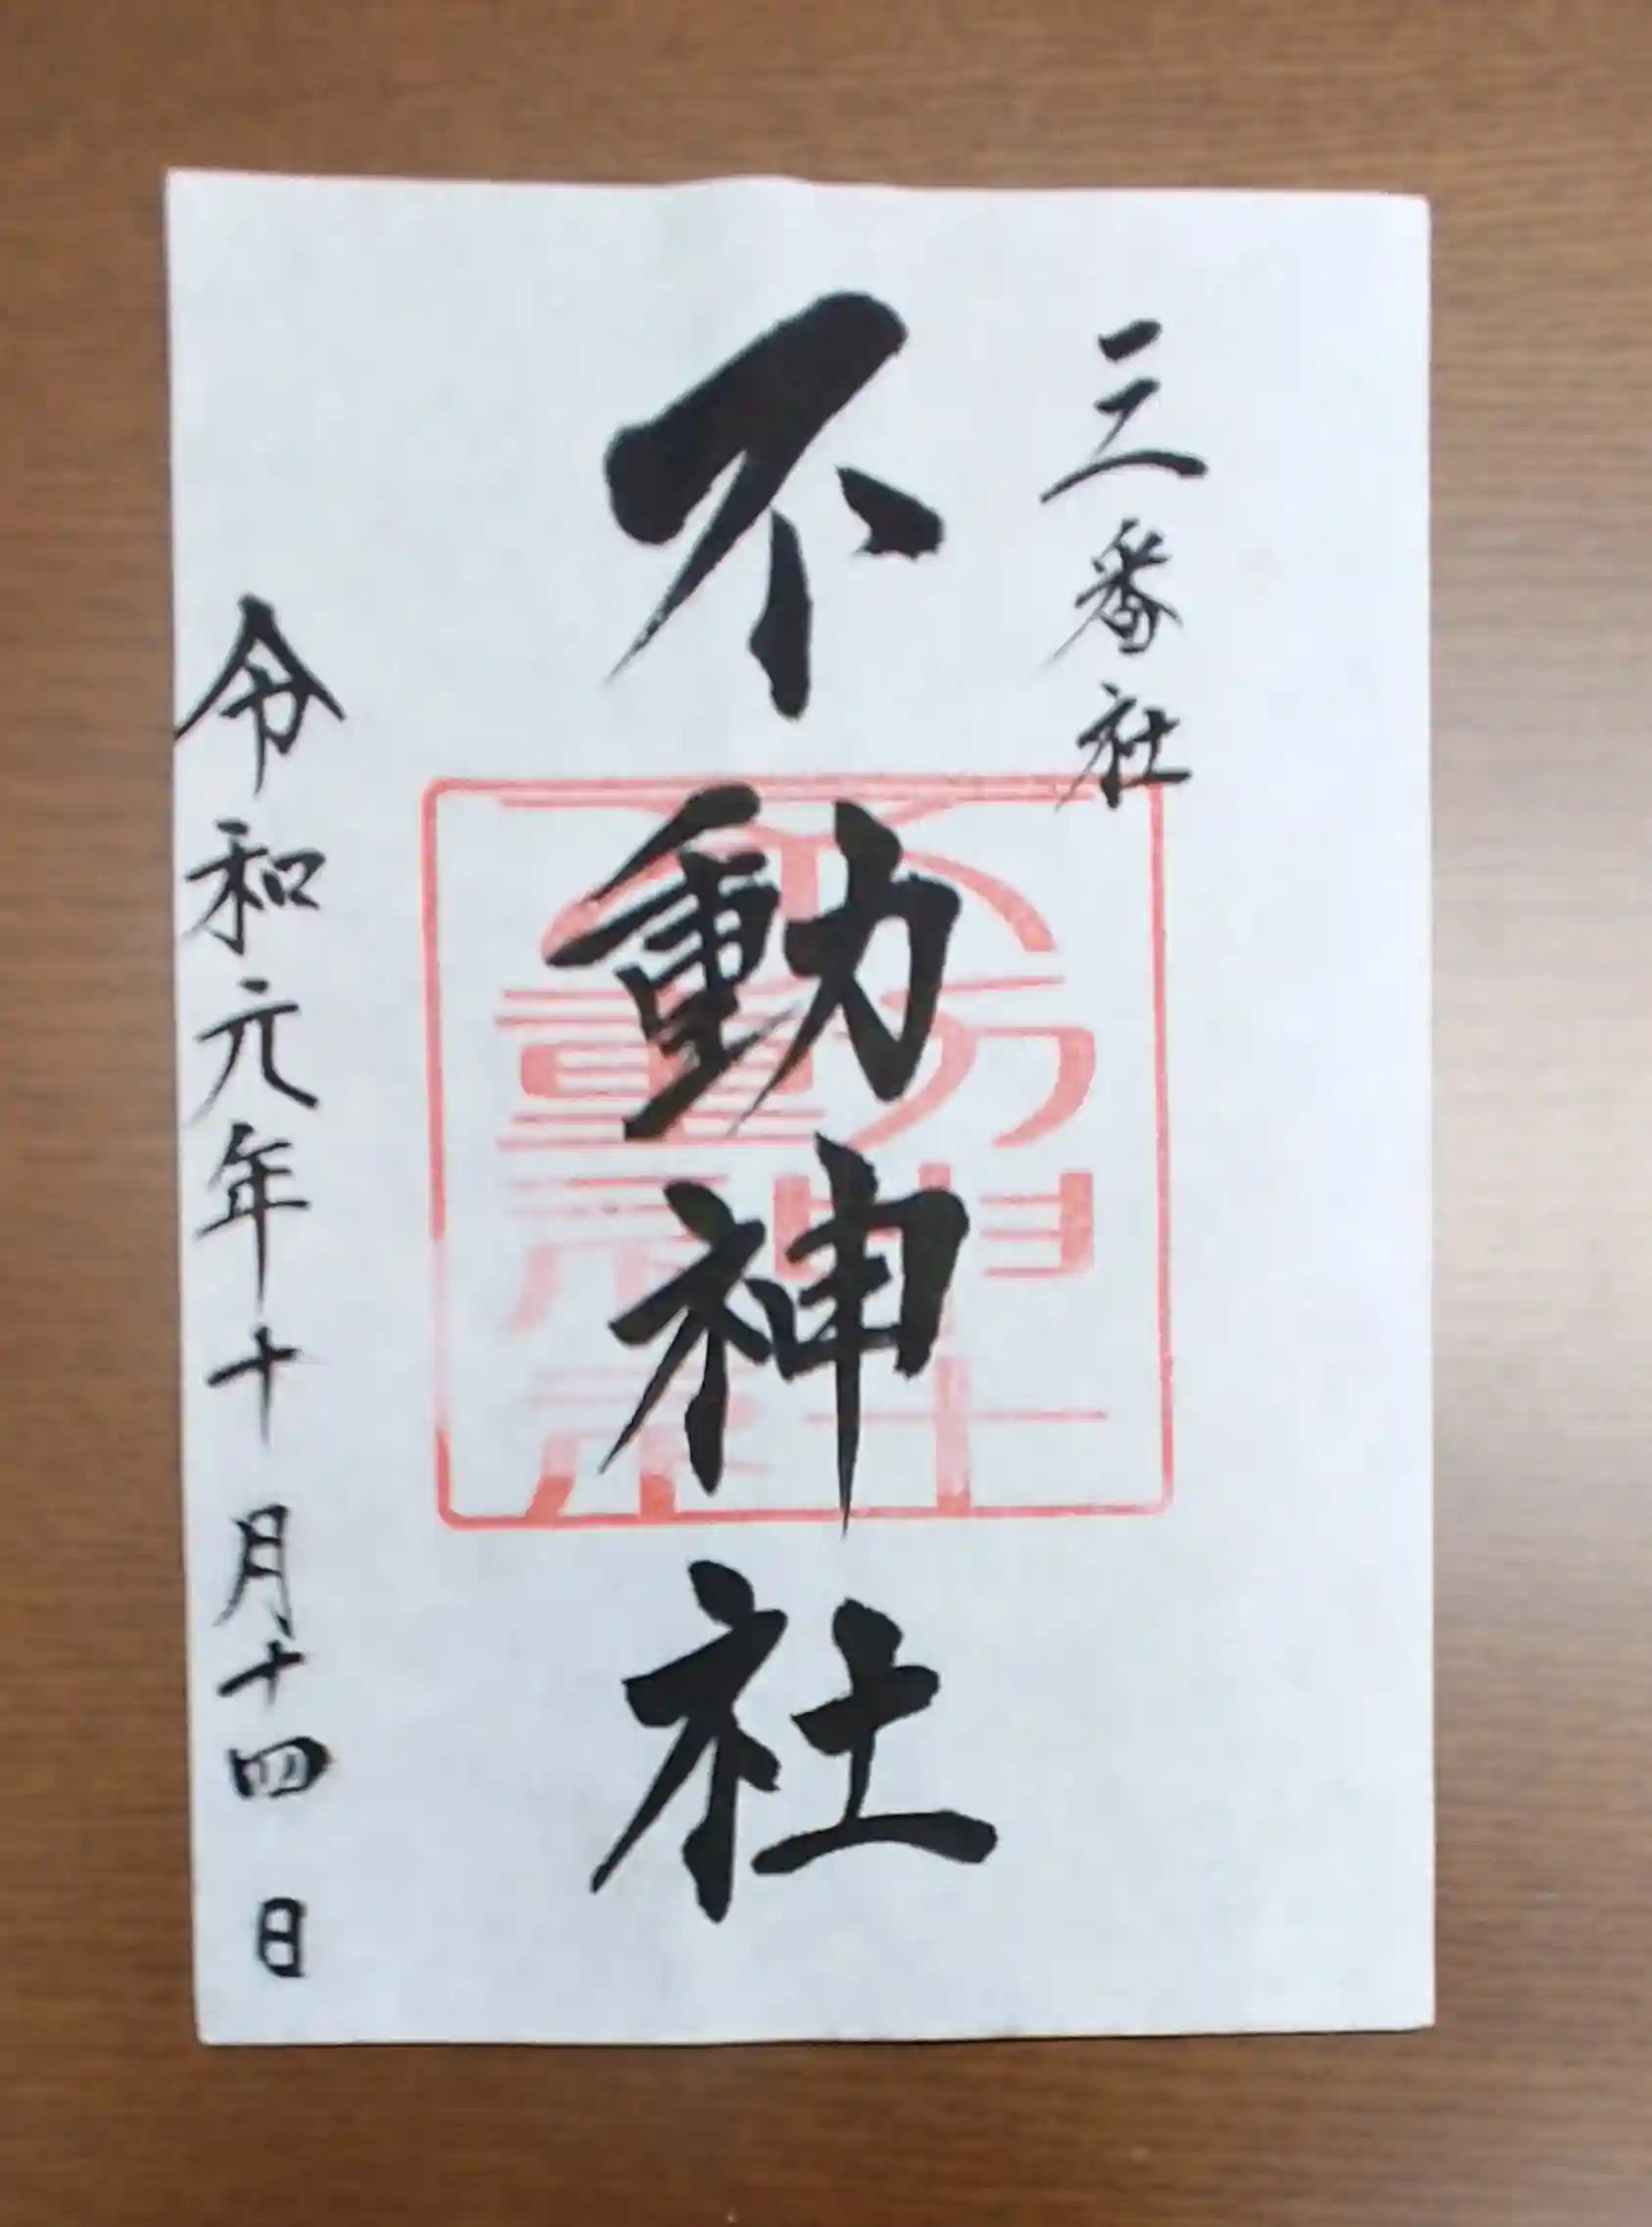 三番社
不動神社
令和元年十月十四日
不動神社